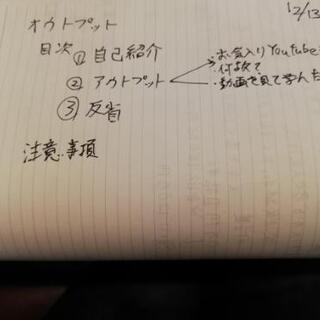 12/13
オウトプット
目次 ① 自己紹介
② アウトプット
・お気入りYoutube
・何故て
・動画を見て学んた
③ 反省
注意事項